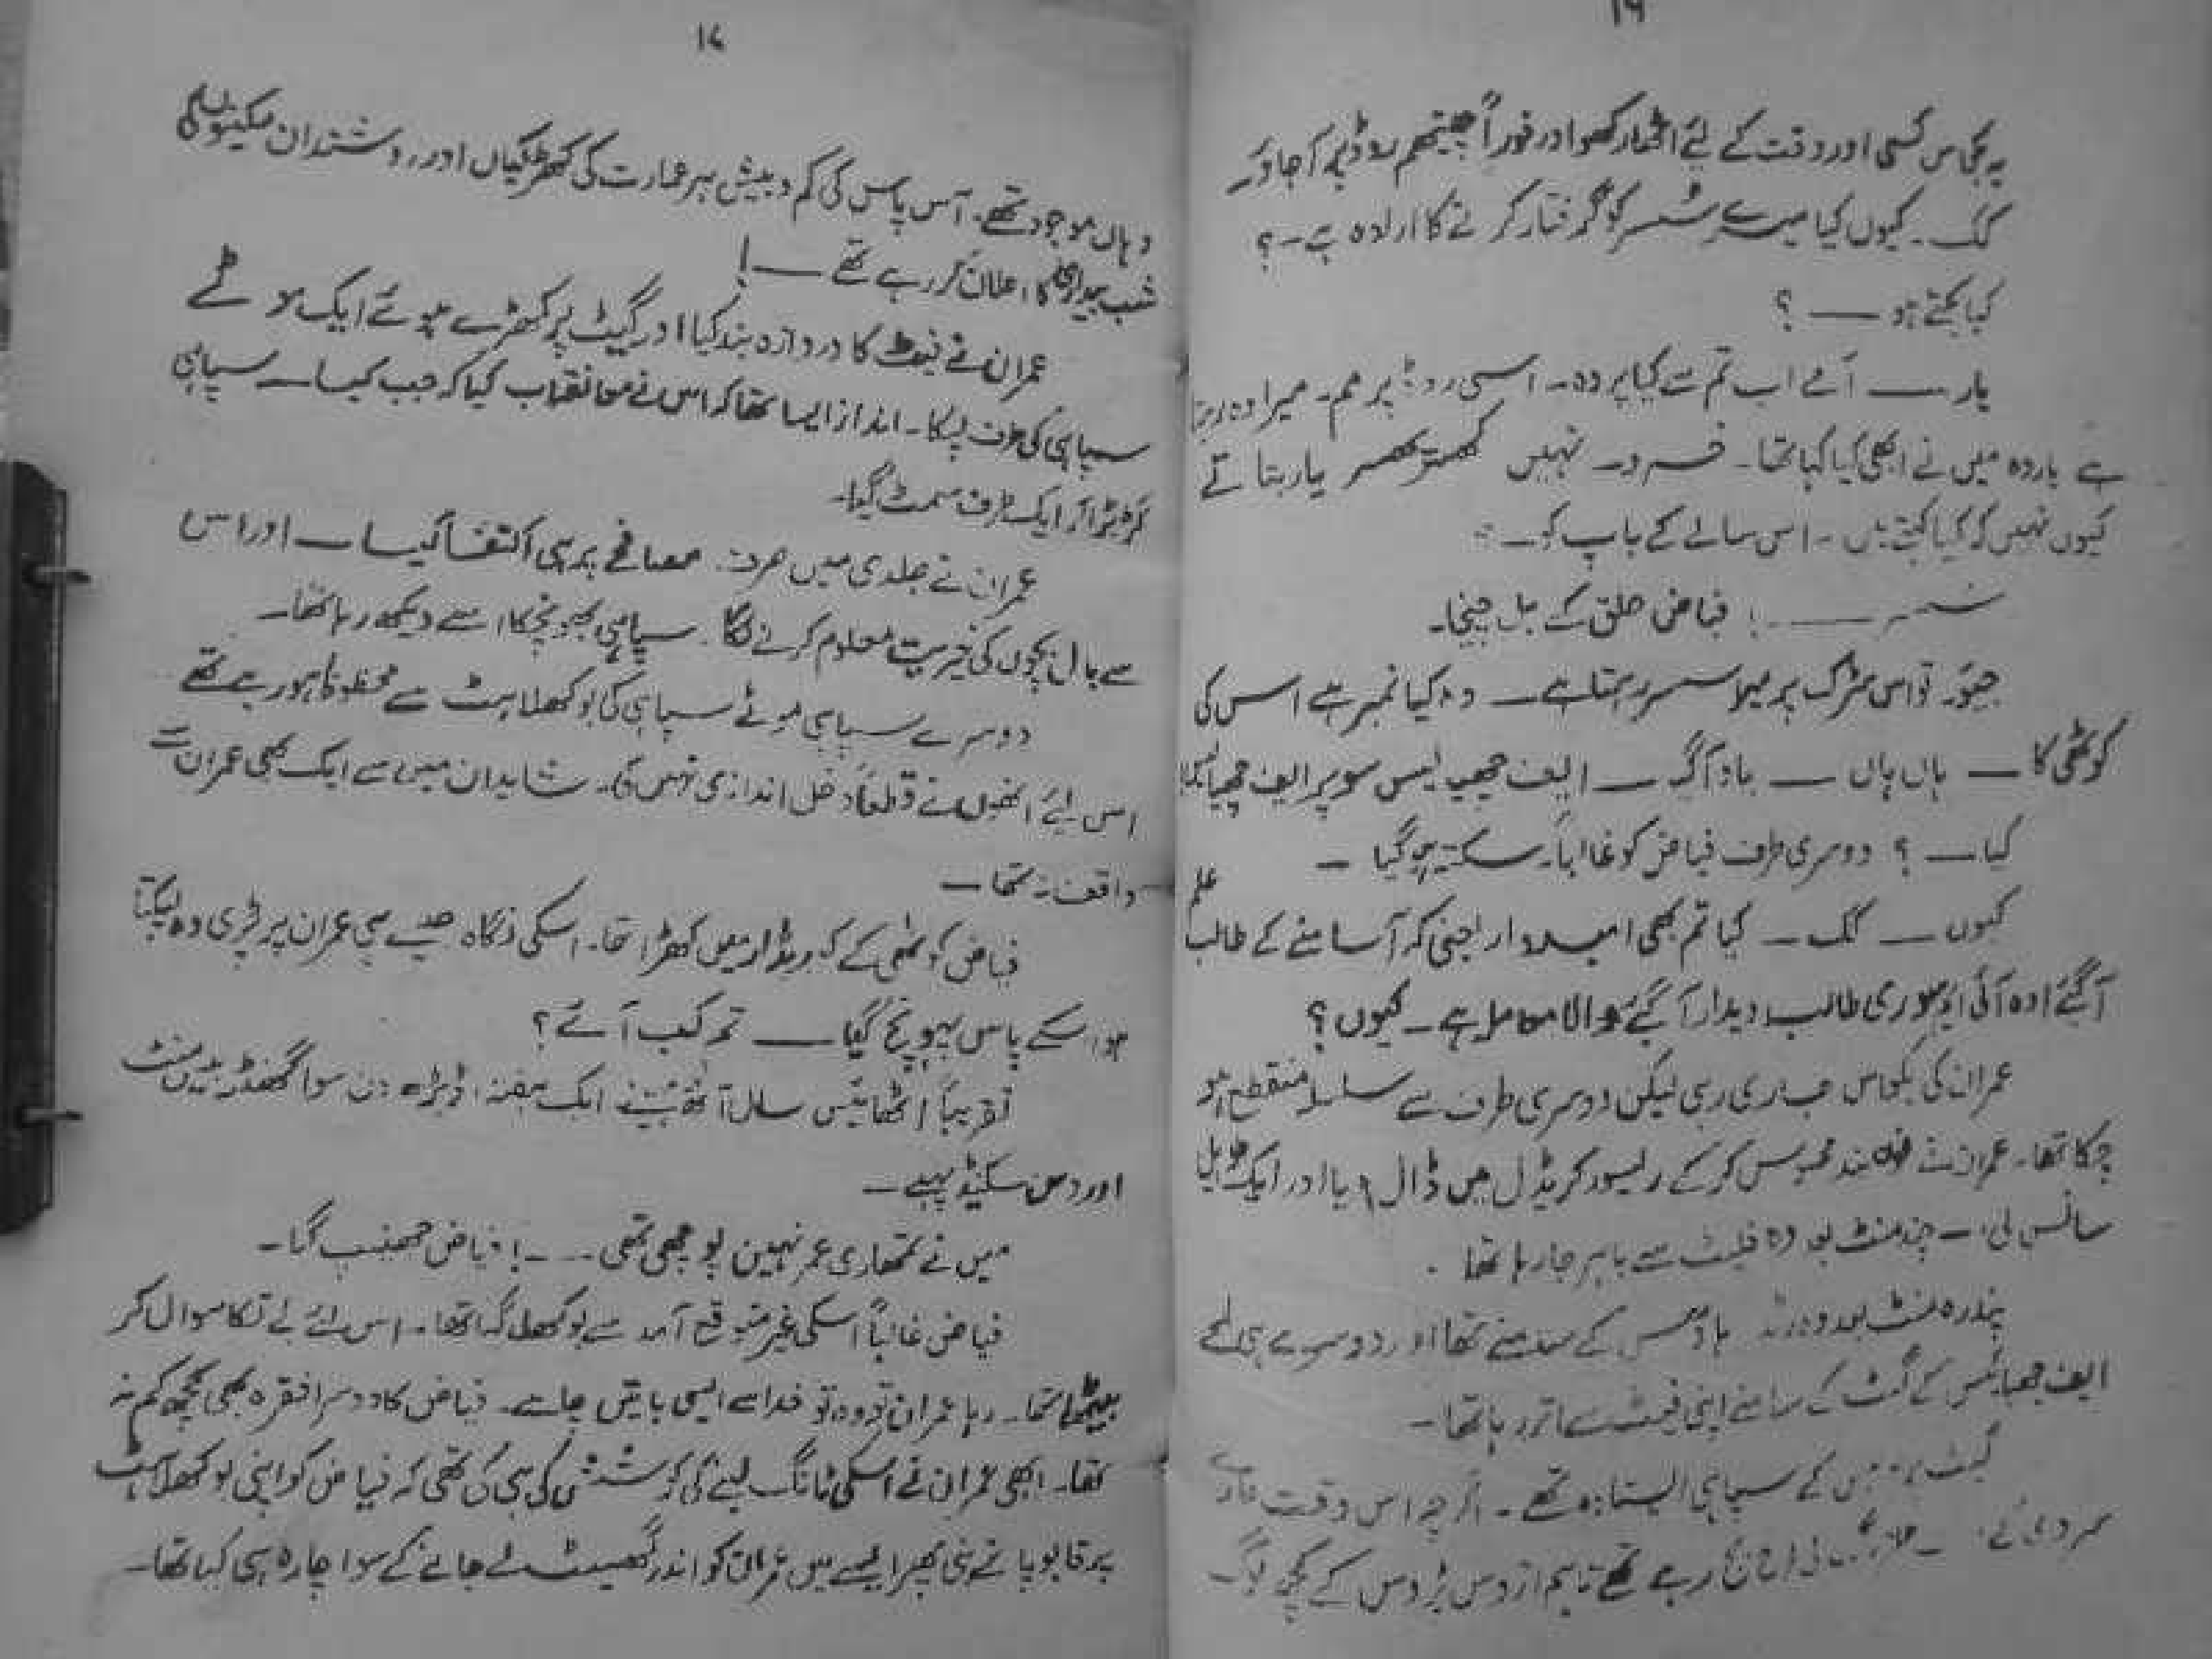 ۱۶
یہ بکواس کسی اور وقت کے لئے اٹھا رکھو اور فوراً چیتھم روڈ پر آجاؤ۔
کک۔ کیوں کیا میرے شسر کو گرفتار کرنے کا ارادہ ہے۔؟
کیا بکتے ہو ــــ ؟
یار ــ آئے اب تم سے کیا پردہ۔ اسی روڈ پر مم۔ میرا وہ رہتا
ہے یار وہ میں نے ابھی کیا کہا تھا۔ نہیں یار بتاتے
کیوں نہیں کہ کیا کہتے ہیں۔ اس سالے کے باپ کو۔
سسر ــــ ! فیاض حلق کے بل چیخا۔
تو اس سڑک پر میرا سسر رہتا ہے۔ کیا نمبر ہے اس کی
کوٹھی کا ــ ہاں ہاں ــ یاد آگیا ــ ایف چھیالیس سوپر ایف چھیالیس
کیا ــ ؟ دوسری طرف فیاض کو غالباً سکتہ ہو گیا ــ
کیوں ــ کک ــ کیا تم بھی امیدوار یعنی کہ آسامنے کے طالب علم
آگئے اوہ آئی ایم سوری طالب دیدار آگئے والا معاملہ ہے۔ کیوں؟
عمران کی بکواس جاری رہی لیکن دوسری طرف سے سلسلہ منقطع ہو
چکا تھا۔ عمران نے کر کے ریسیور کریڈل میں ڈال دیا اور ایک طویل
سانس لی۔ چند منٹ بعد وہ فلیٹ سے باہر جا رہا تھا۔
پندرہ منٹ بعد وہ کے سامنے تھا اور دوسرے ہی لمحے
ایف چھیالیس کے گیٹ کے سامنے اپنی سے اتر رہا تھا۔
گیٹ پر کے سپاہی ایستادہ تھے۔ اگرچہ اس وقت
رہے تھے تاہم اڑوس پڑوس کے کچھ لوگ
۱۷
وہاں موجود تھے۔ آس پاس کی کم و بیش ہر عمارت کی کھڑکیاں اور روشندان مکینوں کی
شب بیداری کا اعلان کر رہے تھے ــــ !
عمران نے کا دروازہ بند کیا اور گیٹ پر کھڑے ہوئے ایک موٹے
سپاہی کی طرف لپکا۔ انداز ایسا تھا کہ اس نے معانقہ اب کیا کہ جب کیا ــ سپاہی
گڑبڑا کر ایک طرف سمٹ گیا۔
عمران نے جلدی میں صرف مصافحے پر ہی اکتفا کیا ــ اور اس
سے بال بچوں کی خیریت معلوم کرنے لگا۔ سپاہی بھونچکا اسے دیکھ رہا تھا۔
دوسرے سپاہی موٹے سپاہی کی بوکھلاہٹ سے محظوظ ہو رہے تھے
اس لئے انھوں نے قطعاً دخل اندازی نہیں کی۔ شاید ان میں سے ایک بھی عمران سے
واقف نہ تھا ــ
فیاض کوٹھی کے کوریڈار میں کھڑا تھا۔ اسکی نگاہ جیسے ہی عمران پر پڑی وہ لپکتا
ہوا اسکے پاس پہونچ گیا ــــ تم کب آئے؟
تقریباً اٹھائیس سال آٹھ مہینے ایک ہفتہ ڈیڑھ دن سوا گھنٹہ منٹ
اور دس سکینڈ پہلے ــ
میں نے تمھاری عمر نہیں پوچھی تھی ــ ! فیاض جھینپ گیا۔
فیاض غالباً اسکی غیر متوقع آمد سے بوکھلا گیا تھا۔ اس لئے بے تکا سوال کر
بیٹھا تھا۔ رہا عمران تو وہ تو خدا سے ایسی باتیں چاہے۔ فیاض کا دوسرا فقرہ بھی کچھ کم نہ
تھا۔ ابھی عمران نے اسکی ٹانگ لینے کی کوشش کی ہی تھی کہ فیاض کو اپنی بوکھلاہٹ
پر قابو پانے نہی پھر ایسے میں عمران کو اندر گھسیٹ لے جانے کے سوا چارہ ہی کیا تھا۔